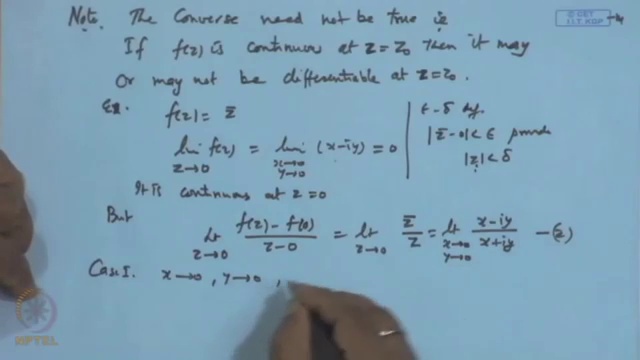 Note. The Converse need not be true ie
If f(z) is continuous at z=z₀ then it may
or may not be differentiable at z=z₀.
Ex. f(z) = z̄
lim z→0 f(z) = lim x→0 y→0 (x-iy) = 0
ε-δ def.
|z̄-0|<ε provide
|z|<δ
It is continuous at z=0
But lt z→0 f(z)-f(0)/z-0 = lt z→0 z̄/z = lt x→0 y→0 x-iy/x+iy —(2)
Case I. x→0, y→0,
© CET
I.I.T. KGP
NPTEL